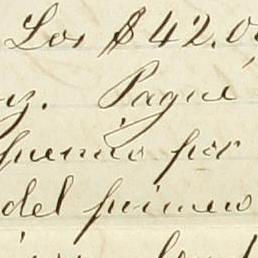 Los $42.0
y. Pagué
premio por
del primero